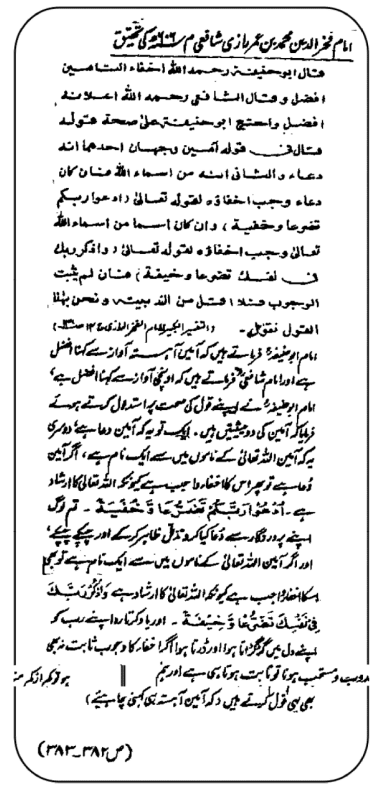 امام فخر الدین محمد بن عمر رازی شافعی م ۶۰۶ھ کی تحقیق
قال ابو حنيفة رحمه الله اخفاء التامين
افضل وقال الشافعى رحمه الله اعلانه
افضل واحتج ابو حنيفة على صحة قوله
قال فى قوله آمين وجهان احدهما انه
دعاء والثانى انه من اسماء الله فان كان
دعاء وجب اخفاؤه لقوله تعالىٰ (ادعوا ربكم
تضرعا وخفية) وان كان اسما من اسماء الله
تعالىٰ وجب اخفاؤه لقوله تعالىٰ (واذكر ربك
فى نفسك تضرعا وخيفة) فان لم يثبت
الوجوب فلا اقل من الندبية ونحن بهٰذا
القول نقول۔ (التفسیر الکبیر للامام الفخر الرازی ج ۱۴ ص)
امام ابو حنیفہؒ فرماتے ہیں کہ آمین آہستہ آواز سے کہنا افضل
ہے اور امام شافعیؒ فرماتے ہیں کہ اونچی آواز سے کہنا افضل ہے،
امام ابو حنیفہؒ نے اپنے قول کی صحت پر استدلال کرتے ہوئے
فرمایا کہ آمین کی دو حیثیتیں ہیں۔ ایک تو یہ کہ آمین دعا ہے، دوسری
یہ کہ آمین اللہ تعالیٰ کے ناموں میں سے ایک نام ہے، اگر آمین
دُعا ہے تو پھر اس کا اخفاء واجب ہے کیونکہ اللہ تعالیٰ کا ارشاد
ہے۔ اُدْعُوْا رَبَّكُمْ تَضَرُّعًا وَّخُفْيَةً۔ تم لوگ
اپنے پروردگار سے دُعا کیا کرو تذلل ظاہر کرکے اور چپکے چپکے،
اور اگر آمین اللہ تعالیٰ کے ناموں میں سے ایک نام ہے تو بھی
اسکا اخفاء واجب ہے کیونکہ اللہ تعالیٰ کا ارشاد ہے وَاذْكُرْ رَّبَّكَ
فِیْ نَفْسِكَ تَضَرُّعًا وَّخِيْفَةً۔ اور یاد کرتا رہ اپنے رب کو
اپنے دل میں گڑگڑاتا ہوا اور ڈرتا ہوا اگر اخفاء کا وجوب ثابت نہ بھی
ہو تو کم از کم مندوب و مستحب ہونا تو ثابت ہوتا ہی ہے اور ہم
بھی یہی قول کرتے ہیں (کہ آمین آہستہ ہی کہنی چاہیئے)
(ص ۳۸۲-۳۸۳)